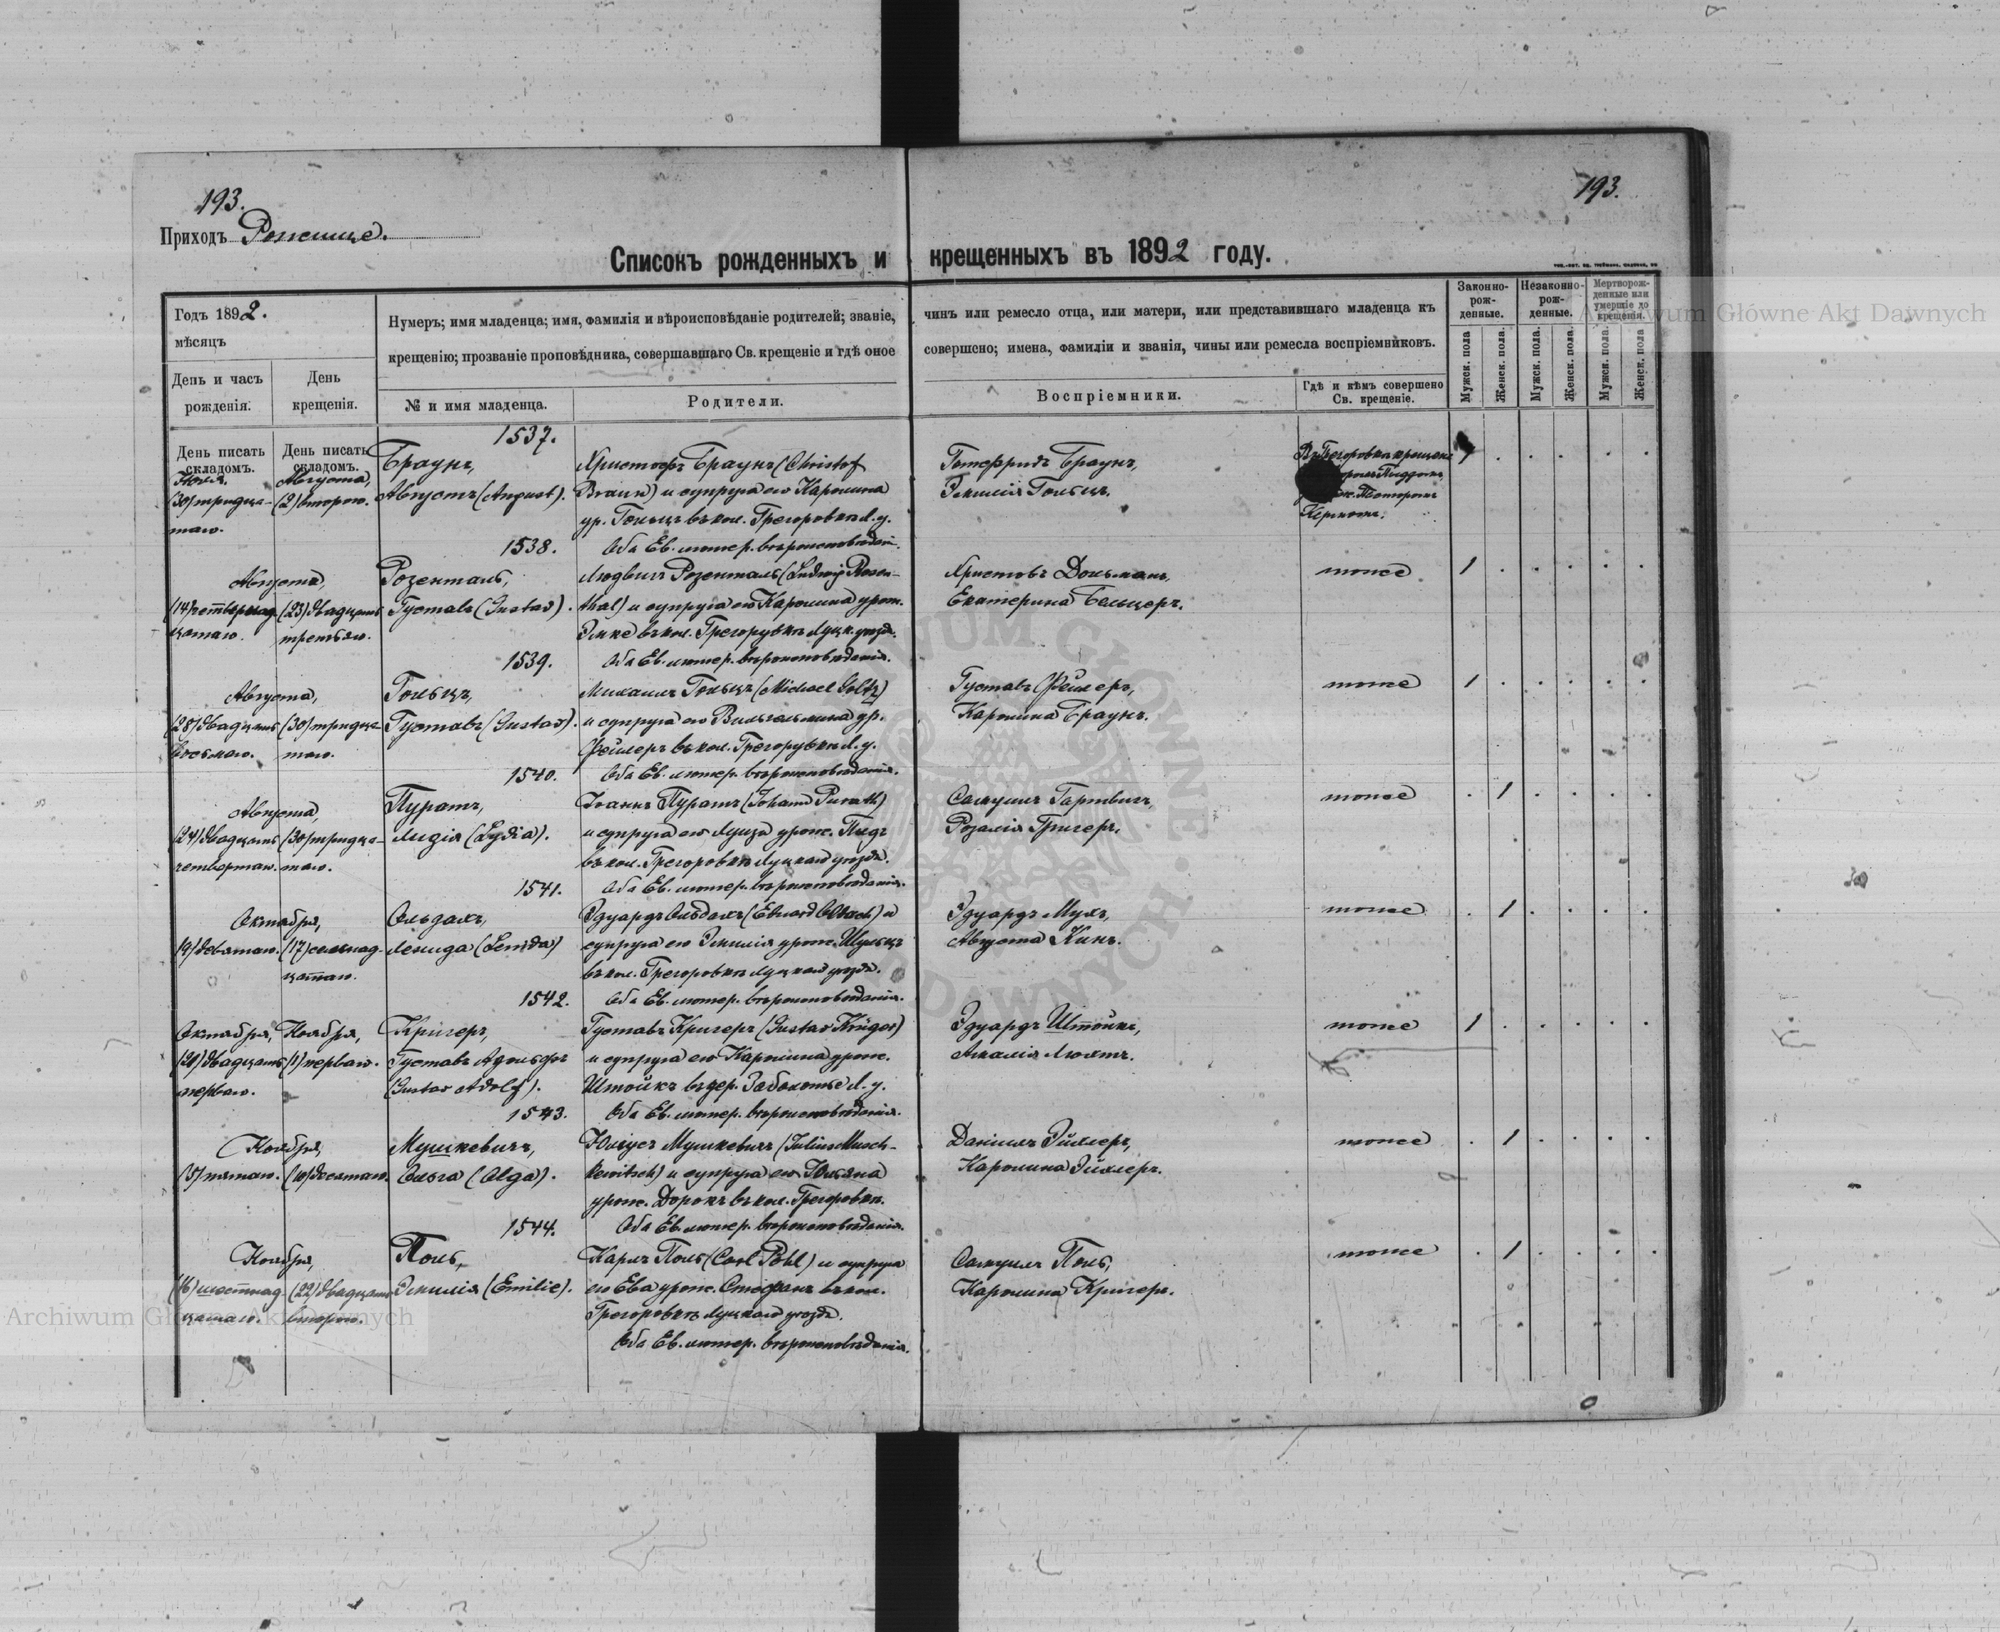 193.
193.
Приходъ Рожище.
Списокъ рожденныхъ и крещенныхъ въ 1892 году.
Годъ 1892.
мѣсяцъ
День и часъ рожденія.
День крещенія.
Нумеръ; имя младенца; имя, фамилія и вѣроисповѣданіе родителей; званіе, чинъ или ремесло отца, или матери, или представившаго младенца къ
крещенію; прозваніе проповѣдника, совершавшаго Св. крещеніе и гдѣ оное совершено; имена, фамиліи и званія, чины или ремесла воспріемниковъ.
№ и имя младенца.
Родители.
Воспріемники.
Гдѣ и кѣмъ совершено Св. крещеніе.
Законно-рож-денные.
Незаконно-рож-денные.
Мертворож-денные или умершіе до крещенія.
Мужск. пола
Женск. пола.
Мужск. пола.
Женск. пола.
Мужск. пола.
Женск. пола
День писать складомъ.
День писать складомъ.
1537.
Августа,
(30) тридца-
таго.
(2) втораго.
Браунъ,
Августъ (August).
Христофъ Браунъ (Christof
Braun) и супруга его Каролина
ур. Гольцъ въ кол. Грегоровкѣ Л. у.
Оба Ев. лютер. вѣроисповѣданія.
Готфридъ Браунъ,
Эмилія Гольцъ.
Въ Грегоровкѣ крещенъ
Пасторомъ
Керномъ.
1538.
Августа,
(14) четвернад-
цатаго.
(23) двадцать
третьяго.
Розенталь,
Густавъ (Gustav).
Людвигъ Розенталь (Ludwig Rosen-
thal) и супруга его Каролина урож.
Эмке въ кол. Грегоровкѣ Луцк. уѣзда.
Оба Ев. лютер. вѣроисповѣданія.
Христовъ Дольманъ,
Екатерина Бельцеръ.
тоже
1
1539.
Августа,
(28) двадцать
восьмаго.
(30) тридца-
таго.
Гольцъ,
Густавъ (Gustav).
Михаилъ Гольцъ (Michael Goltz)
и супруга его Вильгельмина ур.
Фейлеръ въ кол. Грегоровкѣ Л. у.
Оба Ев. лютер. вѣроисповѣданія.
Густавъ Фейлеръ,
Каролина Браунъ.
тоже
1
1540.
Августа,
(24) двадцать
четвертаго.
(30) тридца-
таго.
Пуратъ,
Лидія (Lydia).
Іоаннъ Пуратъ (Johann Purath)
и супруга его Луиза урож.
въ кол. Грегоровкѣ Луцкаго уѣзда.
Оба Ев. лютер. вѣроисповѣданія.
Самуилъ Гартвигъ,
Розалія Кригеръ.
тоже
1
1541.
Октября,
(9) девятаго.
(17) семнад-
цатаго.
Ольдахъ,
Ленида (Lenida)
Эдуардъ Ольдахъ (Eduard Oldach) и
супруга его Эмилія урож. Шульцъ
въ кол. Грегоровкѣ Луцкаго уѣзда.
Оба Ев. лютер. вѣроисповѣданія.
Эдуардъ Мухъ,
Августа Кинъ.
тоже
1
1542.
Октября,
(21) двадцать
перваго.
Ноября,
(1) перваго.
Кригеръ,
Густавъ Адольфъ
(Gustav Adolf).
Густавъ Кригеръ (Gustav Krüger)
и супруга его Каролина урож.
Штойкъ въ дер. Заболотье Л. у.
Оба Ев. лютер. вѣроисповѣданія.
Эдуардъ Штойкъ,
Амалія Люхтъ.
тоже
1
1543.
Ноября,
(5) пятаго.
(10) десятаго.
Мушкевичъ,
Ольга (Olga).
Юліусъ Мушкевичъ (Julius Musch-
kewitsch) и супруга его Юліяна
урож. Дорокъ въ кол. Грегоровкѣ.
Оба Ев. лютер. вѣроисповѣданія.
Даніилъ Эйхлеръ,
Каролина Эйхлеръ.
тоже
1
1544.
Ноября,
(16) шестнад-
цатаго.
(22) двадцать
втораго.
Поль,
Эмилія (Emilie).
Карлъ Поль (Carl Pohl) и супруга
его Ева урож. Стефанъ въ кол.
Грегоровкѣ Луцкаго уѣзда.
Оба Ев. лютер. вѣроисповѣданія.
Самуилъ Поль,
Каролина Кригеръ.
тоже
1
Archiwum Główne Akt Dawnych
Archiwum Główne Akt Dawnych